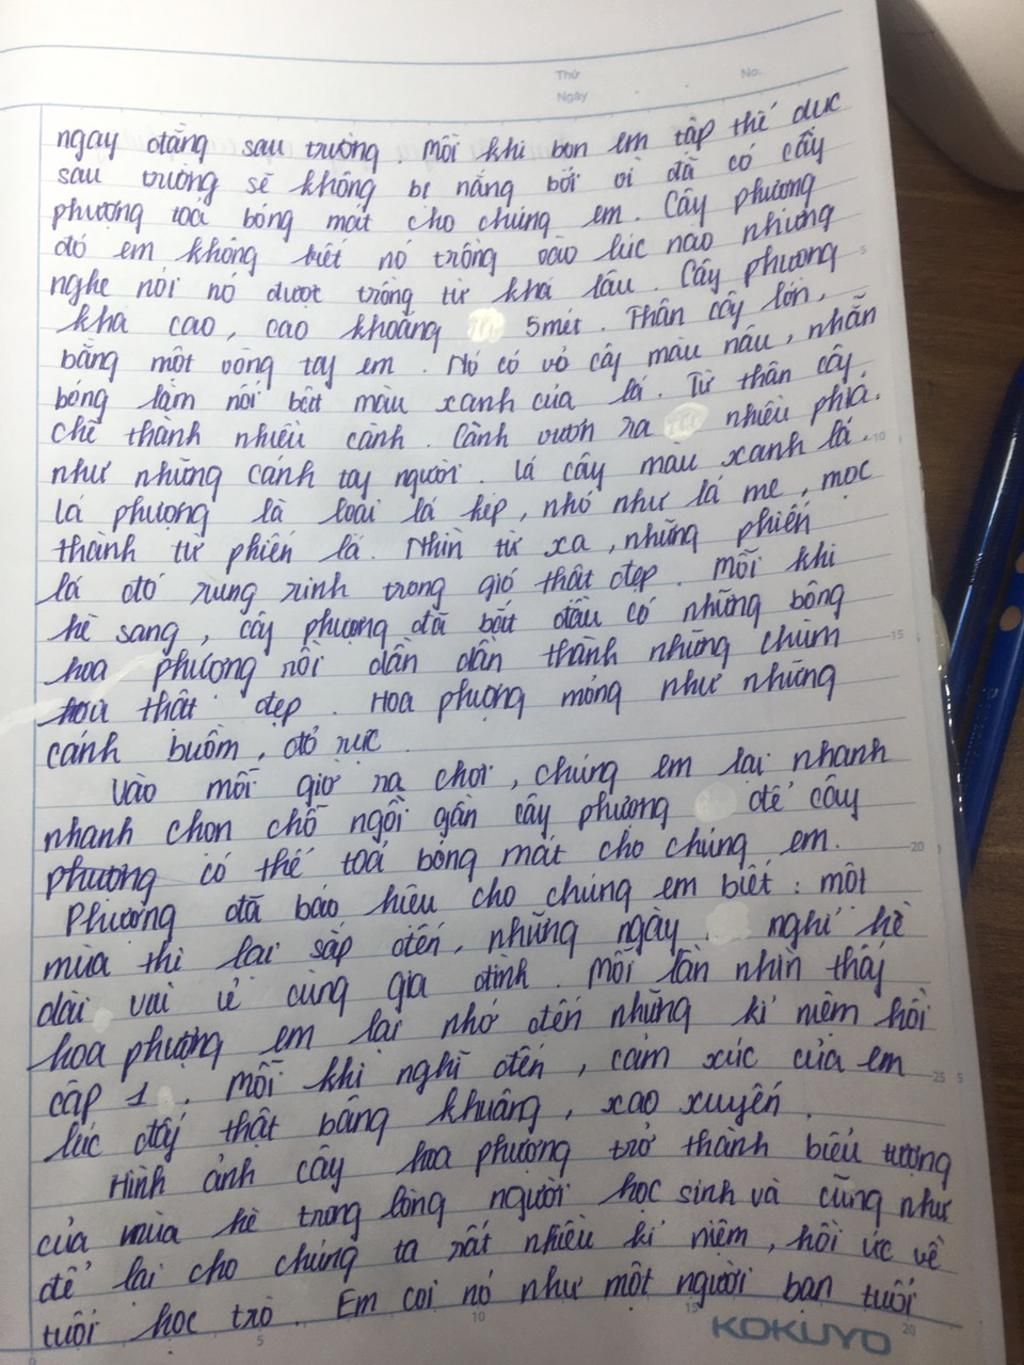 Thứ
No.
Ngày
ngay đằng sau trường. Mỗi khi bọn em tập thể dục
sau trường sẽ không bị nắng bởi vì đã có cây
phượng toả bóng mát cho chúng em. Cây phượng
đó em không biết nó trồng vào lúc nào nhưng
nghe nói nó được trồng từ khá lâu. Cây phượng
khá cao, cao khoảng 5 mét. Thân cây lớn,
bằng một vòng tay em. Nó có vỏ cây màu nâu, nhẵn
bóng làm nổi bật màu xanh của lá. Từ thân cây,
chẽ thành nhiều cành. Cành vươn ra nhiều phía.
như những cánh tay người. Lá cây màu xanh lá.
Lá phượng là loài lá kép, nhỏ như lá me, mọc
thành từ phiến lá. Nhìn từ xa, những phiến
lá đó rung rinh trong gió thật đẹp. Mỗi khi
hè sang, cây phượng đã bắt đầu có những bông
hoa phượng rồi dần dần thành những chùm
hoa thật đẹp. Hoa phượng mỏng như những
cánh buồm, đỏ rực.
Vào mỗi giờ ra chơi, chúng em lại nhanh
nhanh chọn chỗ ngồi gần cây phượng để cây
phượng có thể toả bóng mát cho chúng em.
Phượng đã báo hiệu cho chúng em biết: một
mùa thi lại sắp đến, những ngày nghỉ hè
dài vui vẻ cùng gia đình. Mỗi lần nhìn thấy
hoa phượng em lại nhớ đến những kỉ niệm hồi
cấp 1. Mỗi khi nghĩ đến, cảm xúc của em
lúc đấy thật bâng khuâng, xao xuyến.
Hình ảnh cây hoa phượng trở thành biểu tượng
của mùa hè trong lòng người học sinh và cũng như
để lại cho chúng ta rất nhiều kỉ niệm, hồi ức về
tuổi học trò. Em coi nó như một người bạn tuổi
5
10
15
20
25
5
10
15
20
KOKUYO